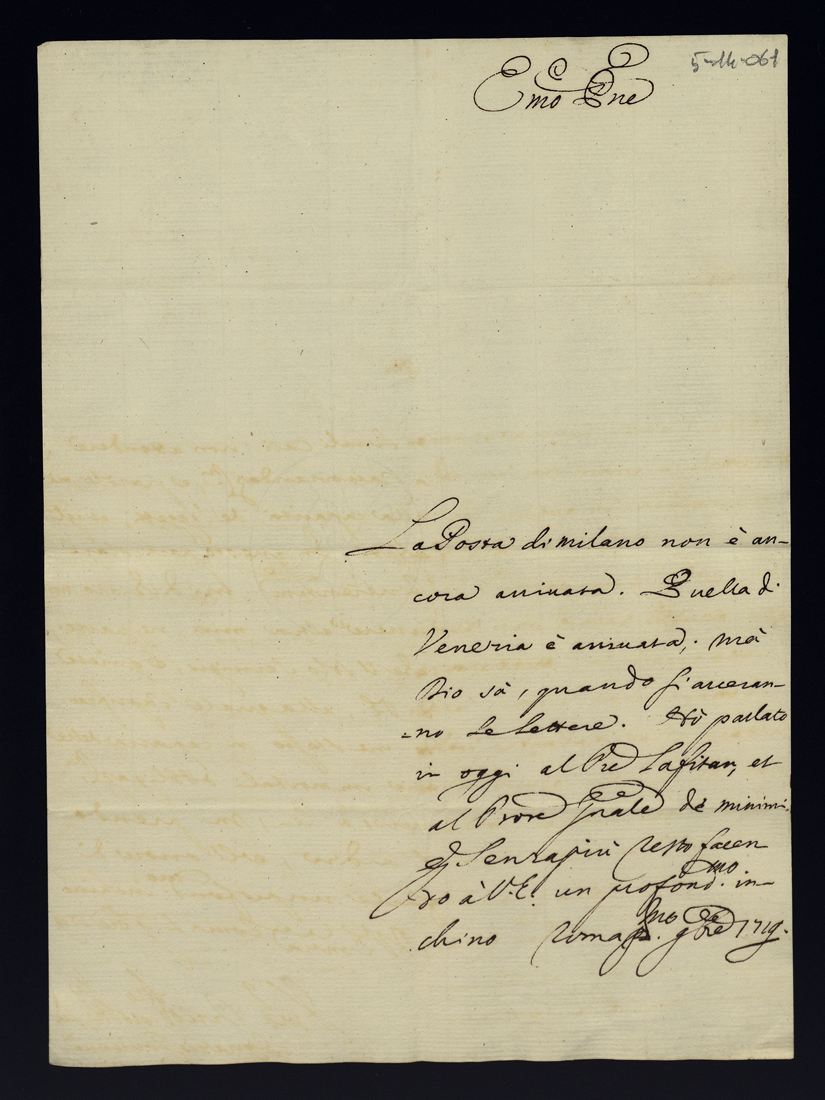 5-14-061
Emo Pne
La Posta di Milano non è an-
cora arrivata. Quella di
Venezia è arrivata, mà
Dio sà, quando si averan-
=no le lettere. Hò parlato
in oggi al Pre Lafitau, et
al Prore Gnale de minimi.
e senza più resto facen-
do à V. E. un profond.mo in-
chino Roma p.mo gbre 1719.